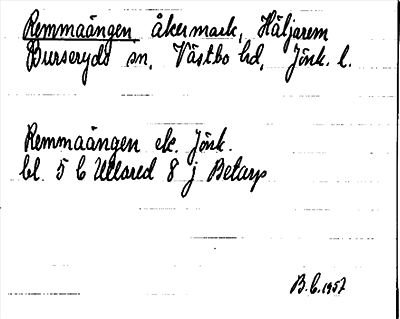 Remmaängen åkermark, Häljarem
Burseryds sn, Västbo hd, Jönk. l.
Remmaängen ek. Jönk.
bl. 5 C Ullared 8 j Betarp
B.C. 1957